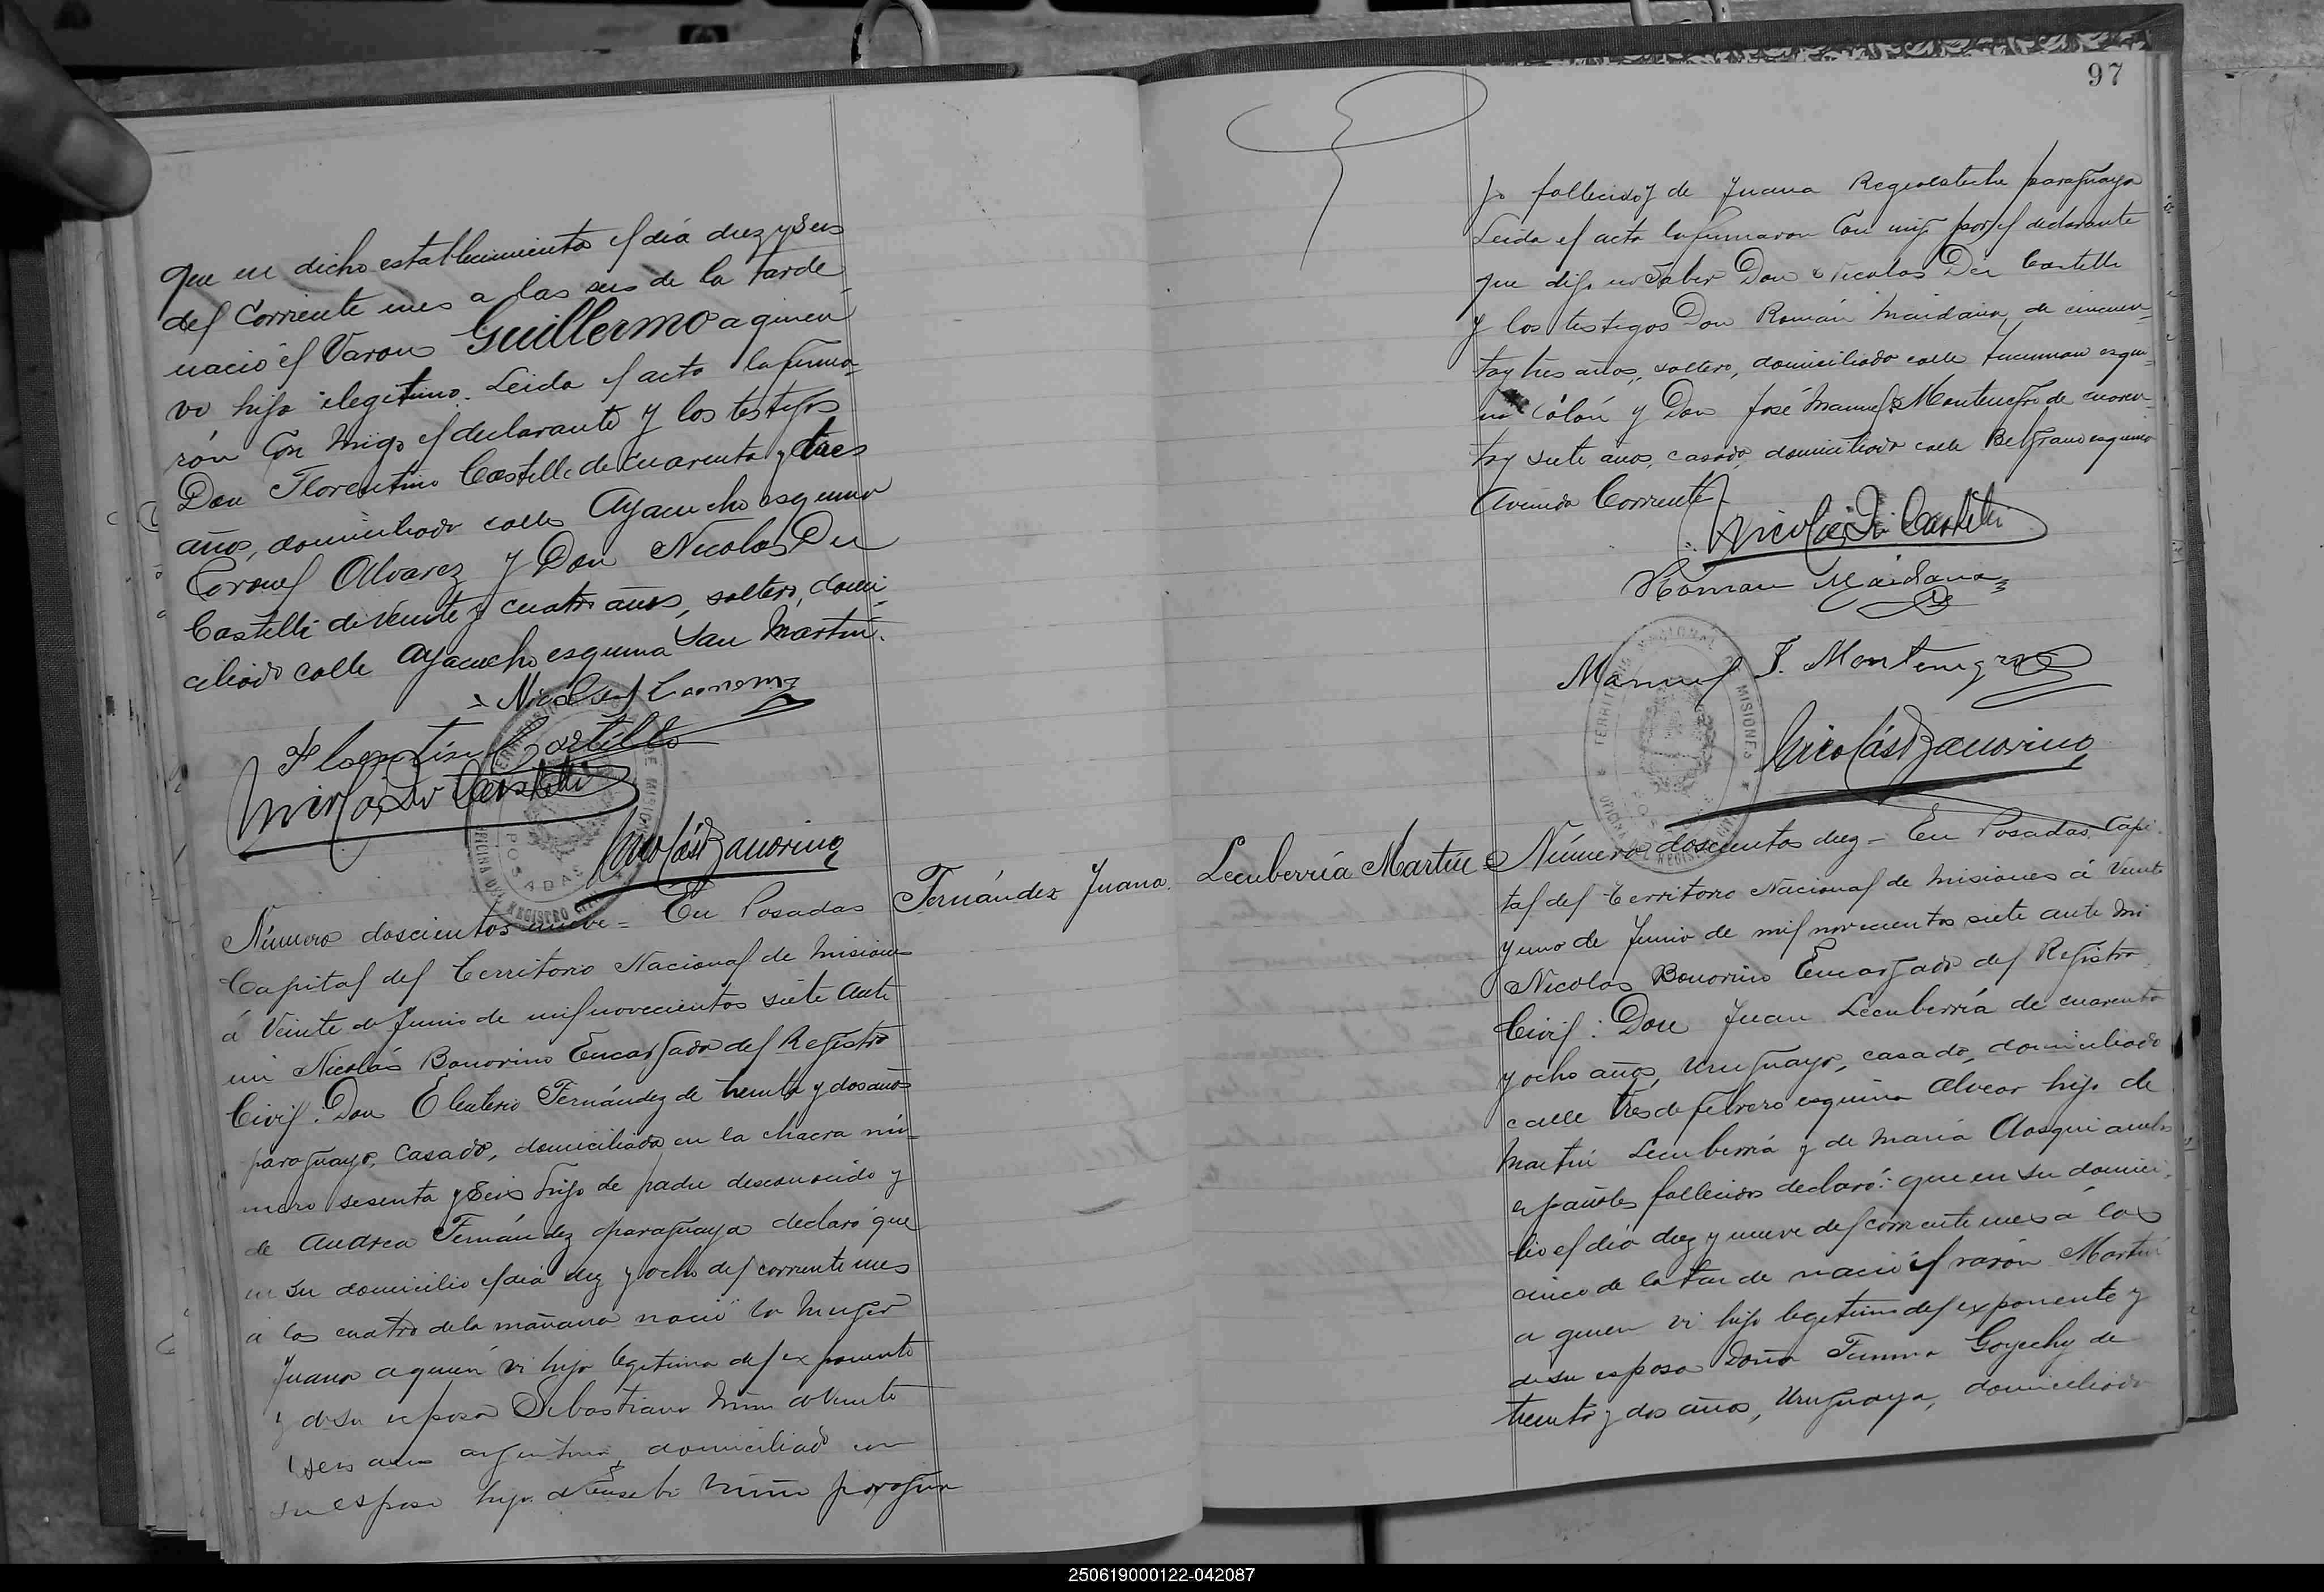 que en dicho establecimiento el día diez y seis
del corriente mes a las seis de la tarde
nació el varon Guillermo a quien
vi hijo ilegitimo. Leida el acta la firma-
rón con migo el declarante y los testigos
Don Florentino Castillo de cuarenta y tres
años, domiciliado calle Ayacucho esquina
Coronel Alvarez y Don Nicolas Di
Castelli de veinte y cuatro años, soltero, domi-
ciliado calle Ayacucho esquina San Martin.
Florentin Castillo
Nicolas Di Castelli
Nicolás Bonorino
TERRITORIO NACIONAL DE MISIONES
OFICINA DEL REGISTRO CIVIL
POSADAS
Número doscientos nueve = En Posadas
Fernández Juana.
Capital del Territorio Nacional de Misiones
á veinte de Junio de mil novecientos siete ante
mi Nicolás Bonorino Encargado del Registro
Civil: Don Eleuterio Fernández de treinta y dos años
paraguayo, casado, domiciliado en la chacra nú-
mero sesenta y seis hijo de padre desconocido y
de Andrea Fernández paraguaya declaró que
en su domicilio el día diez y ocho del corriente mes
á las cuatro de la mañana nació la muger
Juana a quien vi hija legitima del exponente
y de su esposa Sebastiana de veinte
y seis años argentina, domiciliado con
su esposo hija de Eusebio paragua
97
yo fallecido y de Juana paraguaya
Leida el acta la firmaron con migo por el declarante
que dijo no saber Don Nicolas Di Castelli
y los testigos Don Román Maidana, de cincuen-
ta y tres años, soltero, domiciliado calle Tucuman esqui-
na Colón y Don José Manuel Montenegro de cuaren-
ta y siete años, casado, domiciliado calle Belgrano esquina
Avenida Corrientes
Nicolas Di Castelli
Roman Maidana
Manuel J. Montenegro
TERRITORIO NACIONAL DE MISIONES
OFICINA DEL REGISTRO CIVIL
POSADAS
Nicolás Bonorino
Lecuberría Martin = Número doscientos diez = En Posadas, Capi-
tal del Territorio Nacional de Misiones á veinte
y uno de Junio de mil novecientos siete ante mi
Nicolas Bonorino Encargado del Registro
Civil: Don Juan Lecuberría de cuarenta
y ocho años, uruguayo, casado, domiciliado
calle Tres de febrero esquina Alvear hijo de
Martin Lecuberría y de María ambos
españoles fallecidos declaró: que en su domici-
lio el día diez y nueve del corriente mes á las
cinco de la tarde nació el varón Martin
a quien vi hijo legitimo del exponente y
de su esposa Doña Goyechy de
treinta y dos años, Uruguaya, domiciliada
250619000122-042087